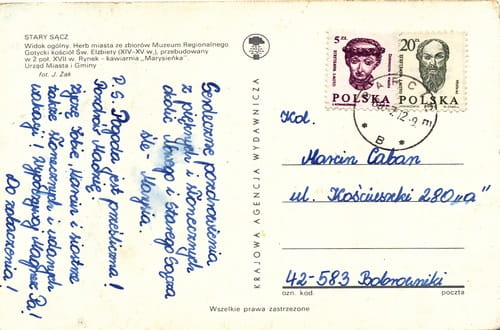 STARY SĄCZ
Widok ogólny. Herb miasta ze zbiorów Muzeum Regionalnego
Gotycki kościół Św. Elżbiety (XIV-XV w.), przebudowany
w 2 poł. XVII w. Rynek - kawiarnia „Marysieńka".
Urząd Miasta i Gminy
fot. J. Żak
Serdeczne pozdrowienia
z pięknych i słonecznych
śle - Marysia.
P.S. Pogoda jest prześliczna!
Pozdrów Madzię.
Życzę Tobie, Marcin i siostrze
także słonecznych i udanych
wakacji!
Do zobaczenia!
KRAJOWA AGENCJA WYDAWNICZA
5 ZŁ
POLSKA
20 ZŁ
POLSKA
Kol.
Marcin Caban
ul. Kościuszki 280 „a"
42-583 Bobrowniki
ozn. kod. poczta
Wszelkie prawa zastrzeżone